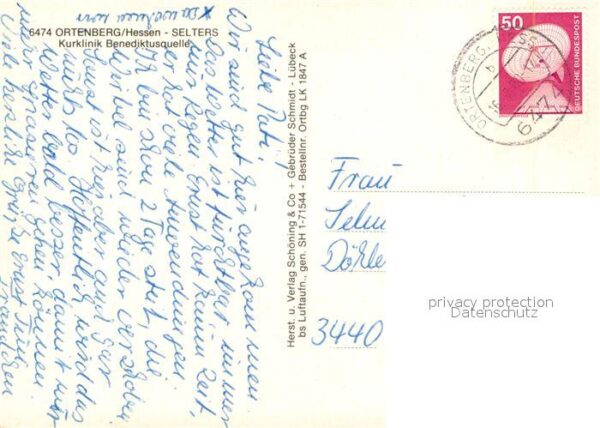 6474 ORTENBERG/Hessen - SELTERS
Kurklinik Benediktusquelle
Liebe Pati!
Wir sind gut hier angekommen
Das Wetter ist furchtbar immer
nur Regen Ernst hat keine Zeit,
er hat viele Anwendungen
Ich bin schon 2 Tage steif, die
Wirbel sind wieder verschoben
Sonst ist hier aber auch gar
nichts los. Hoffentlich wird das
Wetter bald besser, damit wir
mehr spazieren gehen können
Viele herzliche Grüße Ernst
Herst. u. Verlag Schöning & Co + Gebrüder Schmidt - Lübeck
bs Luftaufn., gen. SH 1-71544 - Bestellnr. Ortbg LK 1847 A
50
DEUTSCHE BUNDESPOST
ORTENBERG
6474
Frau
Selm
Döhle
3440
privacy protection
Datenschutz